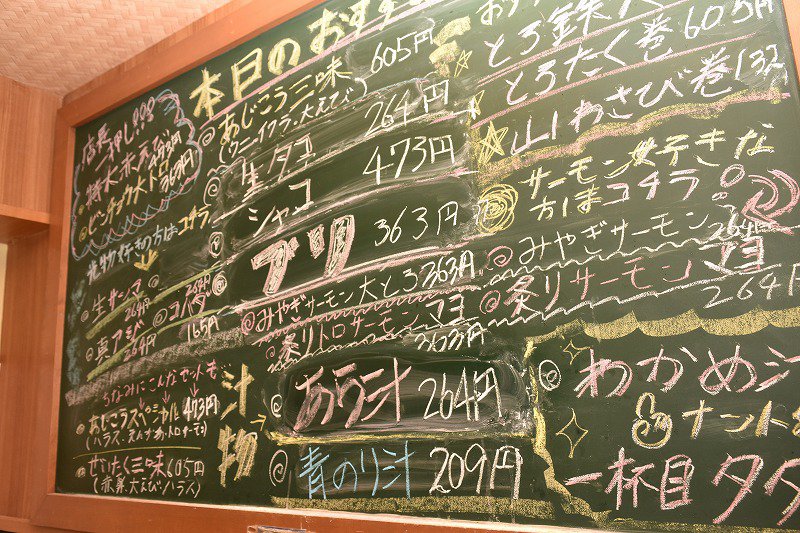 本日のおすすめ
店長
一押し!!!
363円
光物好きの方はコチラ
生サンマ
264円
真アジ
264円
コハダ
165円
ちなみにこんなセットも
あじこうスペシャル 473円
ぜいたく三味 605円
汁物
あじこう三味 605円
(ウニ・イクラ・大えび)
生タコ 264円
シャコ 473円
ブリ 363円
みやぎサーモン大とろ 363円
炙りトロサーモンマヨ
363円
あら汁 264円
青のり汁 209円
とろ鉄火
とろたく巻 605円
山わさび巻 132
サーモン好きな
方はコチラ
みやぎサーモン
264円
炙りサーモンマヨ
264
わかめ汁
ナント
一杯目タダ